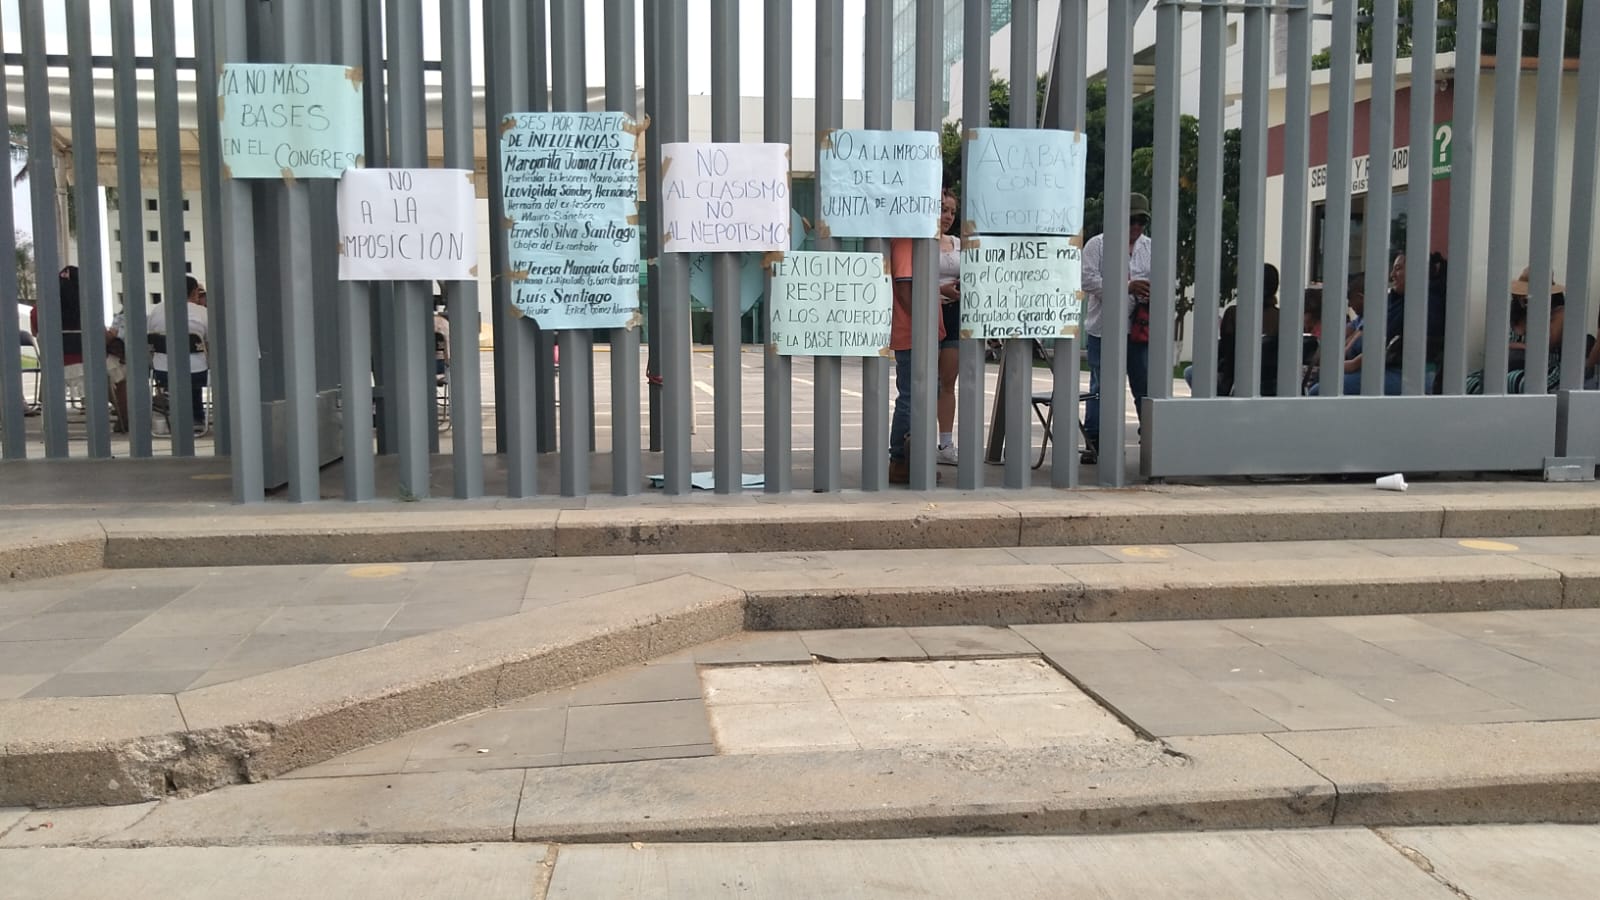 YA NO MÁS
BASES
EN EL CONGRESO
NO
A LA
IMPOSICION
BASES POR TRÁFICO
DE INFLUENCIAS
Margarita Juana Flores
Particular Ex-tesorero Mauro Sánchez
Leovigilda Sánchez Hernández
Hermana del ex-tesorero
Mauro Sánchez
Ernesto Silva Santiago
Chofer del Ex-contralor
Ma Teresa Munguía García
Hermana Ex-Diputado G. García Henestrosa
Luis Santiago
Particular Ericel Gómez
NO
AL CLASISMO
NO
AL NEPOTISMO
NO A LA IMPOSICIÓN
DE LA
JUNTA DE ARBITRAJE
EXIGIMOS
RESPETO
A LOS ACUERDOS
DE LA BASE TRABAJADORA
ACABAR
CON EL
NEPOTISMO
NI una BASE más
en el Congreso
NO a la herencia del
ex diputado Gerardo García
Henestrosa
?